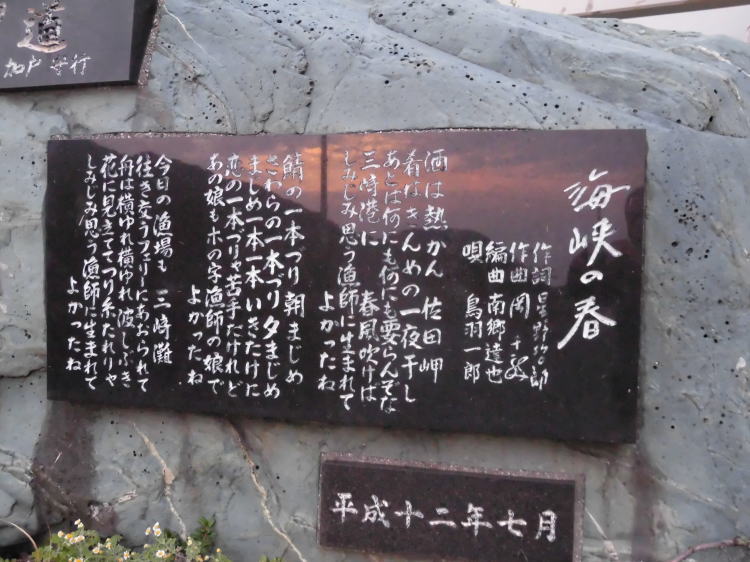 道
加戸守行
海峡の春
作詞 星野哲郎
作曲 岡 千秋
編曲 南郷達也
唄 鳥羽一郎
酒は熱かん 佐田岬
肴はきんめの一夜干し
あとは何にも何にも要らんぞな
三崎港に 春風吹けば
しみじみ思う漁師に生まれて
よかったね
鯖の一本づり朝まじめ
さわらの一本づり夕まじめ
まじめ一本一本いきたけに
恋の一本づりゃ苦手だけれど
あの娘もホの字漁師の娘で
よかったね
今日の漁場も 三崎灘
往き交うフェリーにあおられて
舟は横ゆれ横ゆれ波しぶき
花に見たててつり糸たれりゃ
しみじみ思う漁師に生まれて
よかったね
平成十二年七月